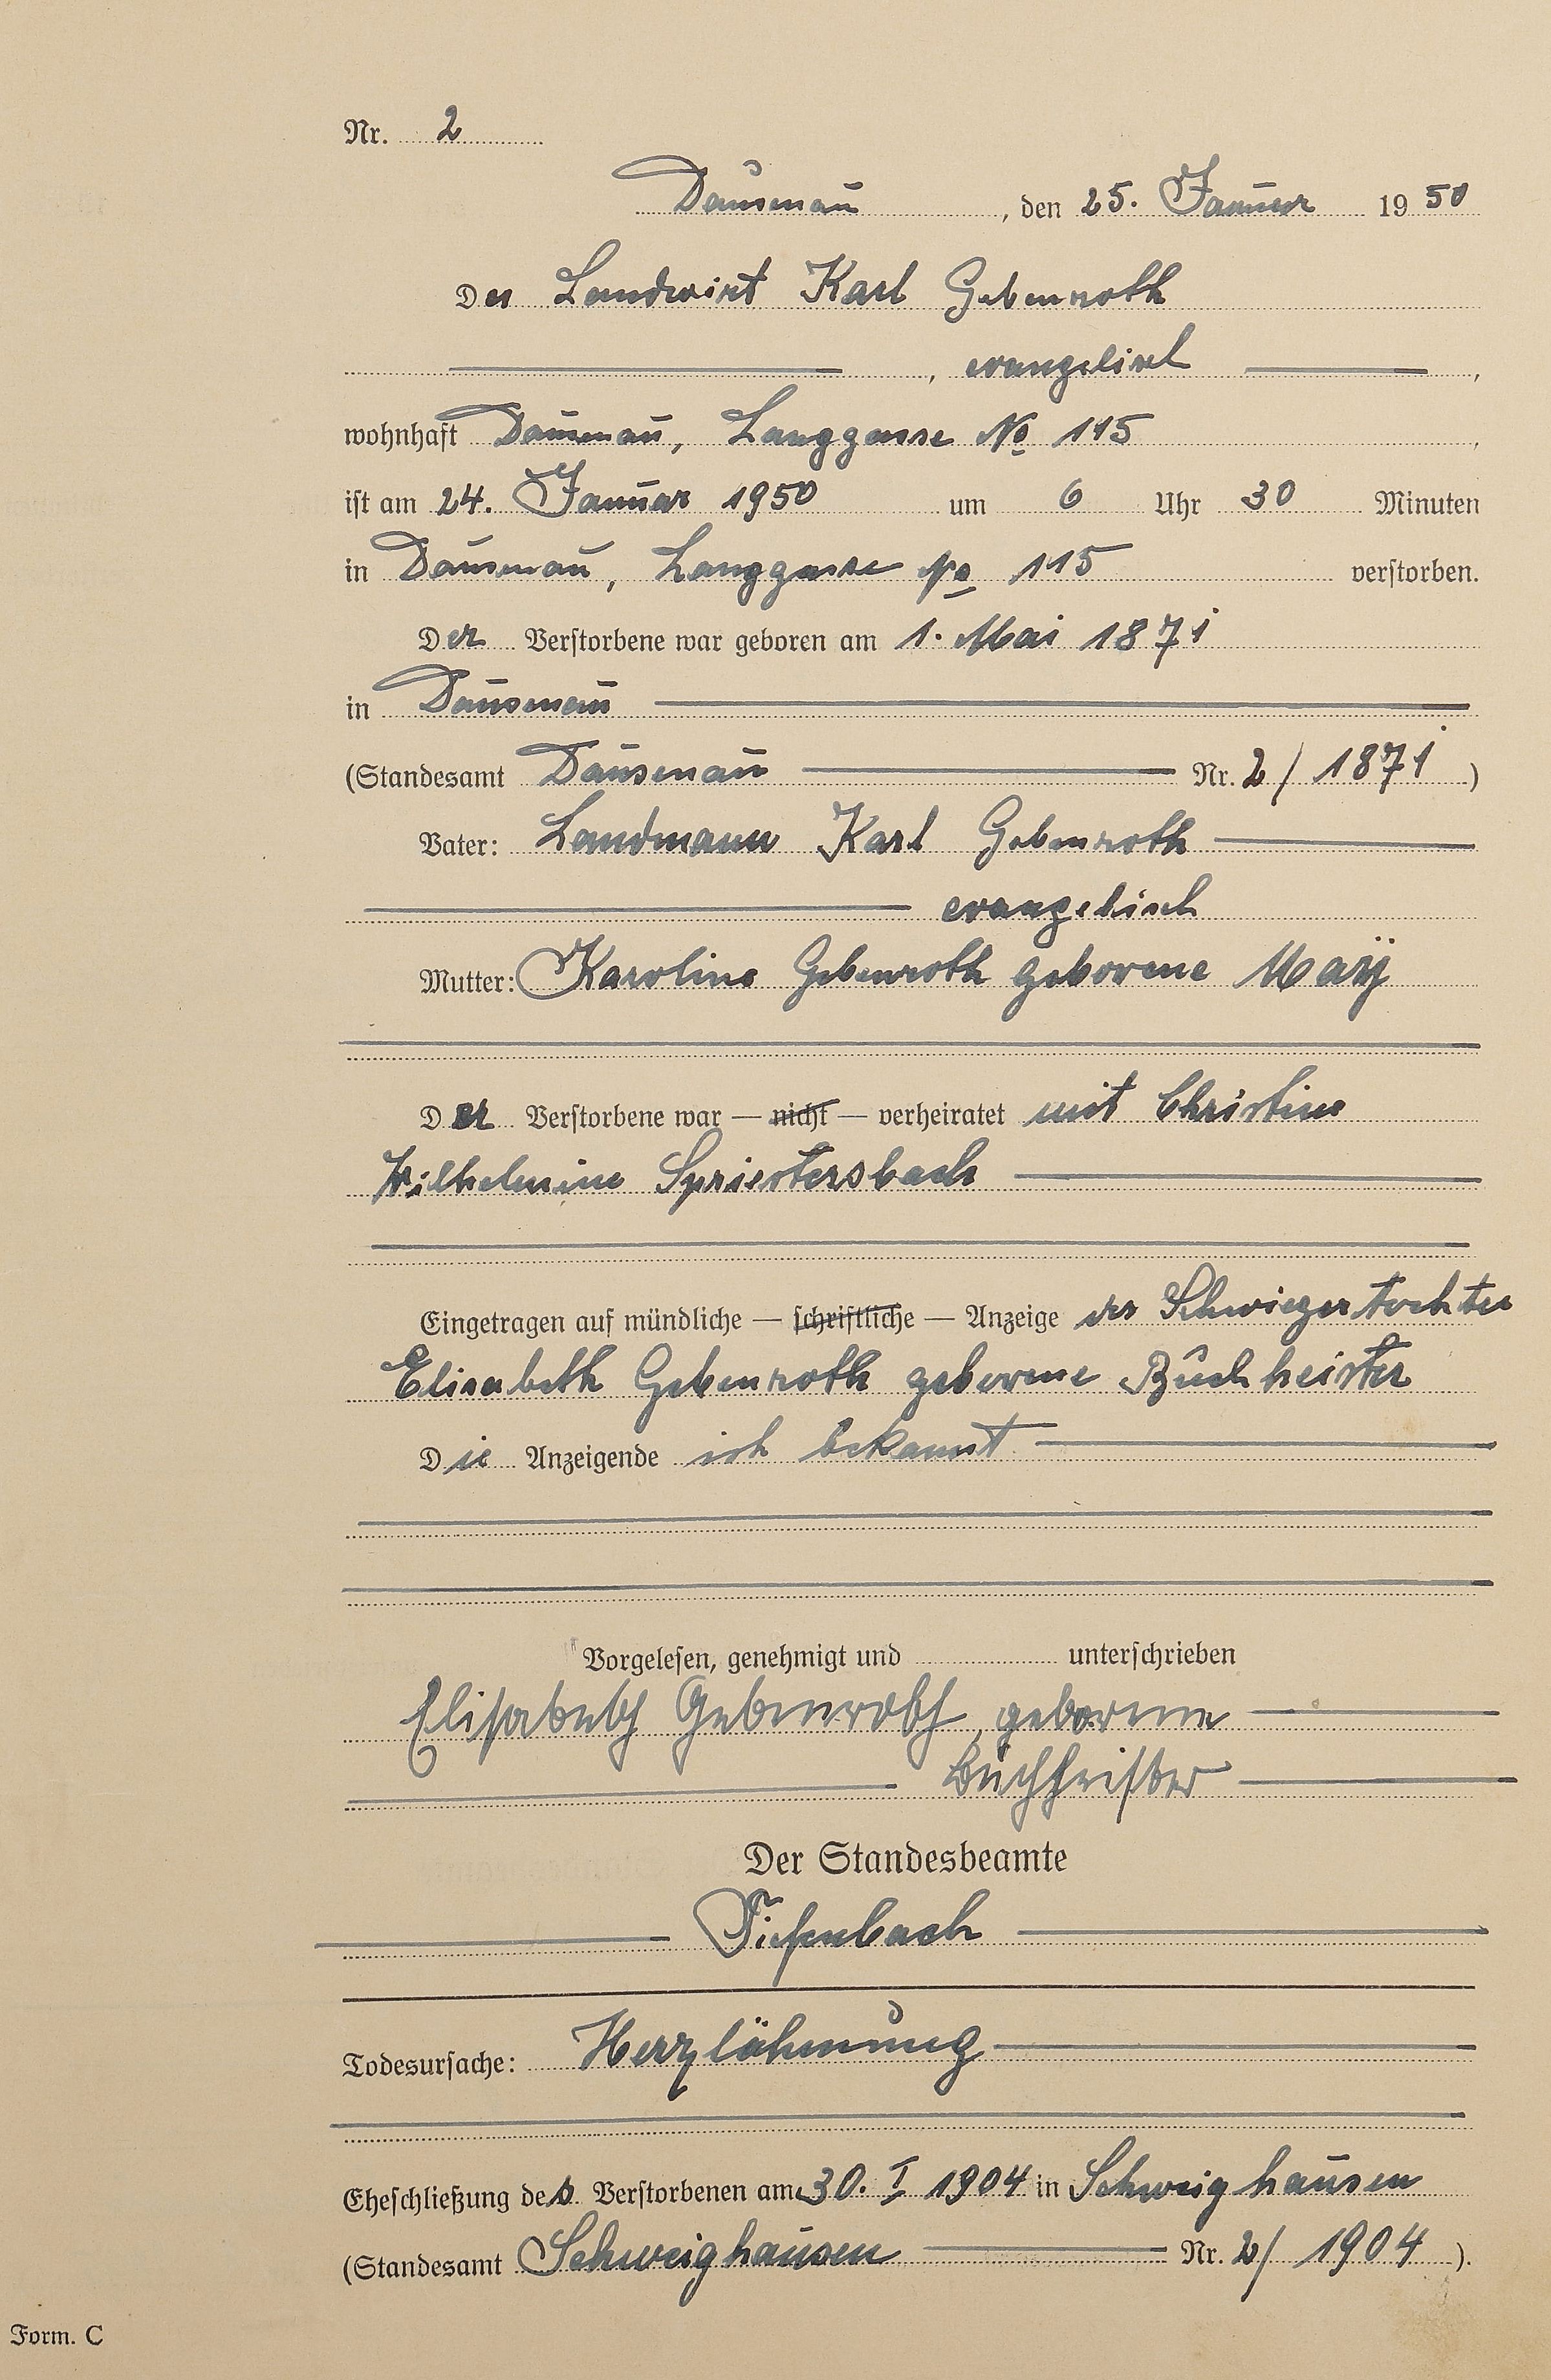 Nr. 2
Dausenau, den 25. Januar 1950
Der Landwirt Karl Gebenroth
, evangelisch ,
wohnhaft Dausenau, Langgasse No 115,
ist am 24. Januar 1950 um 6 Uhr 30 Minuten
in Dausenau, Langgasse No 115 verstorben.
Der Verstorbene war geboren am 1. Mai 1871
in Dausenau
(Standesamt Dausenau Nr. 2/1871)
Vater: Landmann Karl Gebenroth
evangelisch
Mutter: Karoline Gebenroth geborene Maÿ
Der Verstorbene war — nicht — verheiratet mit Christine
Wilhelmine Spriestersbach
Eingetragen auf mündliche — schriftliche — Anzeige der Schwiegertochter
Elisabeth Gebenroth geborene Buchheister
Die Anzeigende ist bekannt
Vorgelesen, genehmigt und unterschrieben
Elisabeth Gebenroth, geborene
Buchheister
Der Standesbeamte
Tiefenbach
Todesursache: Herzlähmung
Eheschließung des Verstorbenen am 30. I 1904 in Schweighausen
(Standesamt Schweighausen Nr. 2/ 1904).
Form. C